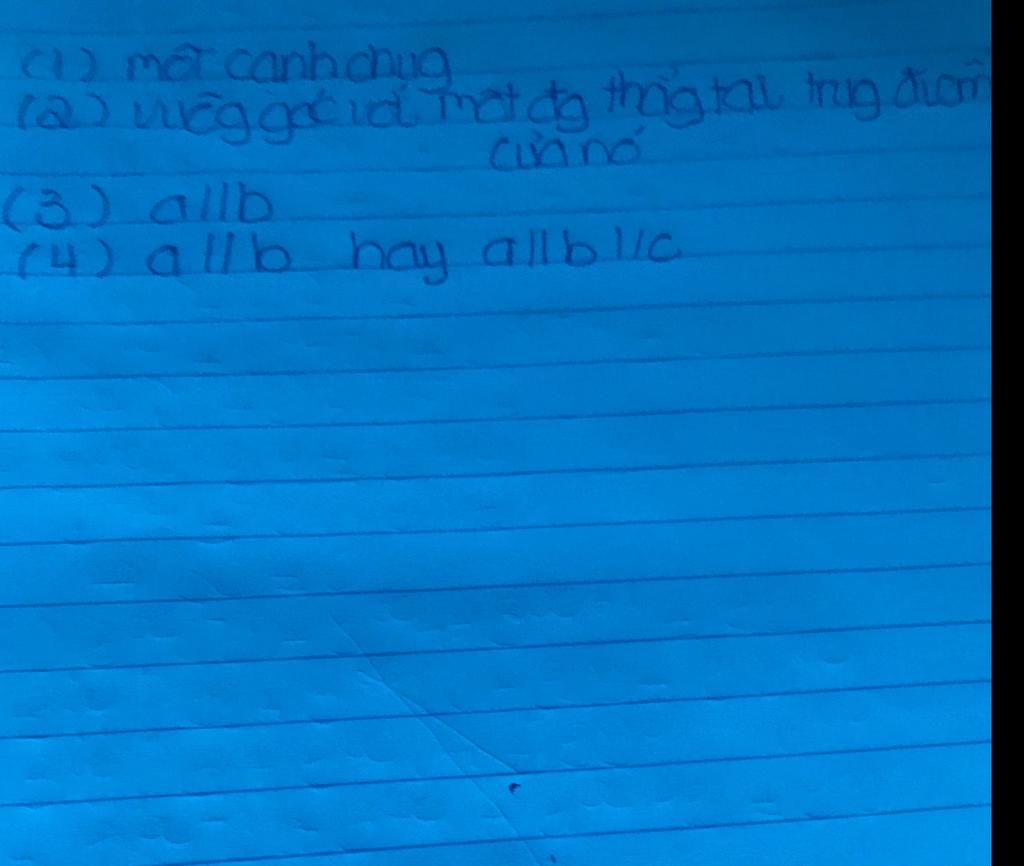 (1) một cạnh chug
(2) vuôg góc với một đg thẳg tại trug điểm
của nó
(3) a//b
(4) a//b hay a//b//c